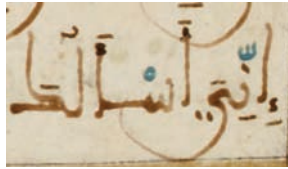 إِنِّي أَسْأَلُكَ